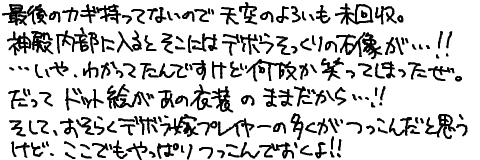 最後のカギ持ってないので天空のよろいも未回収。
神殿内部に入るとそこにはデボラそっくりの石像が…!!
…いや、わかってたんですけど何故か笑ってしまったぜ。
だってドット絵があの衣装のままだから…!!
そして、おそらくデボラ嫁プレイヤーの多くがつっこんだと思う
けど、ここでもやっぱりつっこんでおくよ!!